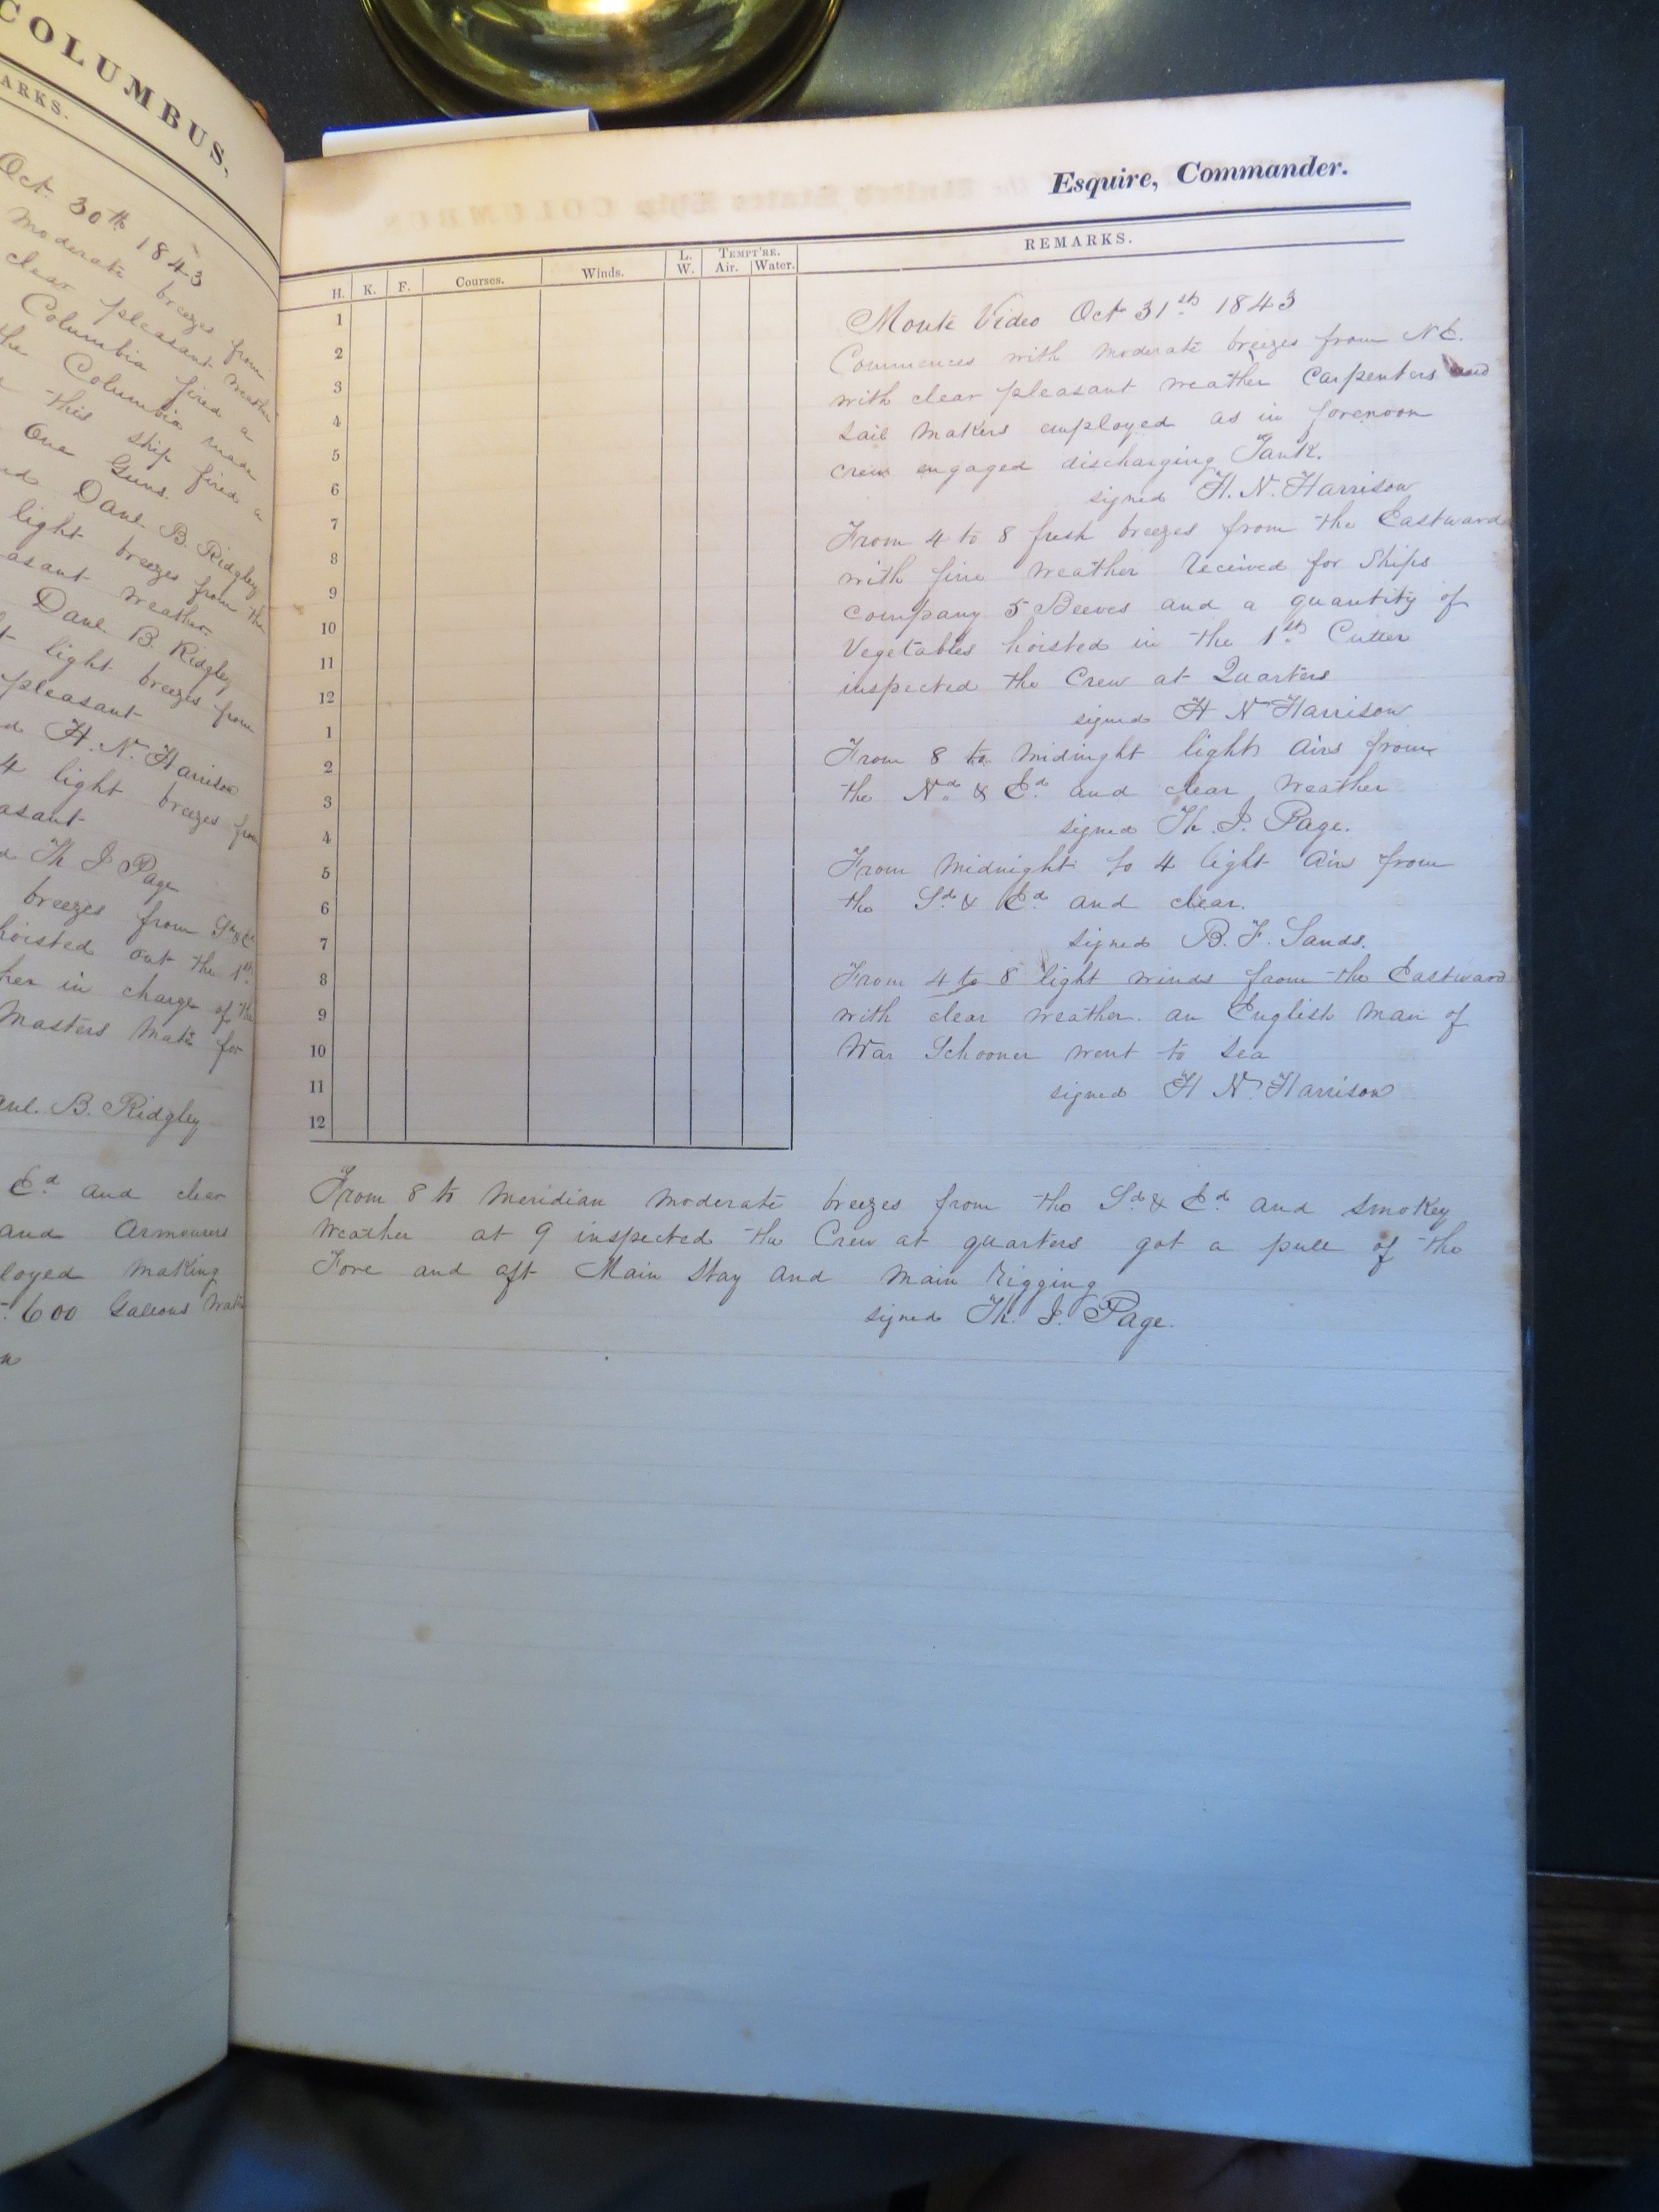 COLUMBUS.
ARKS.
Oct. 30th 1843
Moderate breezes from
clear pleasant weather
Columbia fired a
the Columbia made
this ship fired a
One Guns.
Danl. B. Ridgley
light breezes from the
asant weather.
Danl B. Ridgley
light breezes from
pleasant
H. N. Harrison
4 light breezes from
asant
Th J Page
breezes from Sd & Ed
hoisted out the 1st
her in charge of the
Masters Mate for
anl. B. Ridgley
Ed and clear
and Armourers
loyed making
600 Gallons Water
Esquire, Commander.
H. K. F. Courses. Winds. L. W. TEMPT'RE. Air. Water. REMARKS.
1
2
3
4
5
6
7
8
9
10
11
12
1
2
3
4
5
6
7
8
9
10
11
12
Monte Video Oct 31st 1843
Commences with moderate breezes from NE.
with clear pleasant weather Carpenters and
Sail Makers employed as in forenoon
crew engaged discharging Tank.
signed H. N. Harrison
From 4 to 8 fresh breezes from the Eastward
with fine weather received for Ships
company 5 Beeves and a quantity of
Vegetables hoisted in the 1st Cutter
inspected the Crew at Quarters
signed H N Harrison
From 8 to Midnight light airs from
the Nd & Ed and clear weather
signed Th. J. Page.
From Midnight to 4 light airs from
the Sd & Ed and clear.
signed B. F. Sands.
From 4 to 8 light winds from the Eastward
with clear weather. an English Man of
War Schooner went to Sea
signed H N Harrison
From 8 to Meridian moderate breezes from the Sd & Ed and Smokey
Weather at 9 inspected the Crew at quarters got a pull of the
Fore and aft Main Stay and Main Rigging
signed Th. J. Page.